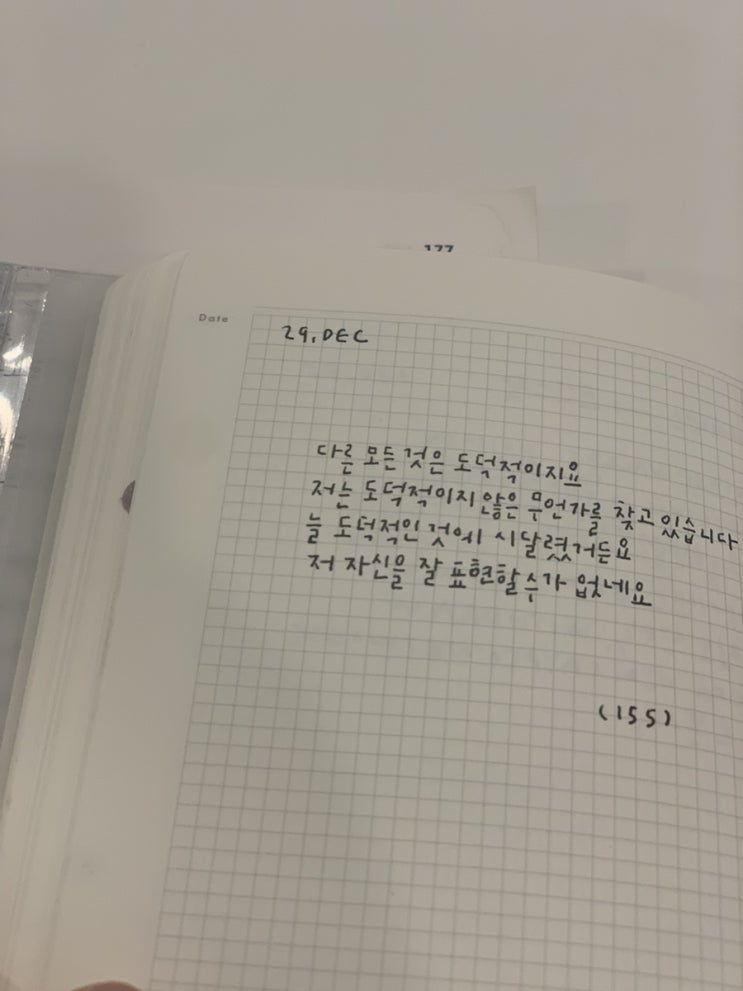 177
Date
29. DEC
다른 모든 것은 도덕적이지요
저는 도덕적이지 않은 무언가를 찾고 있습니다
늘 도덕적인 것에 시달렸거든요
저 자신을 잘 표현할 수가 없네요
(155)